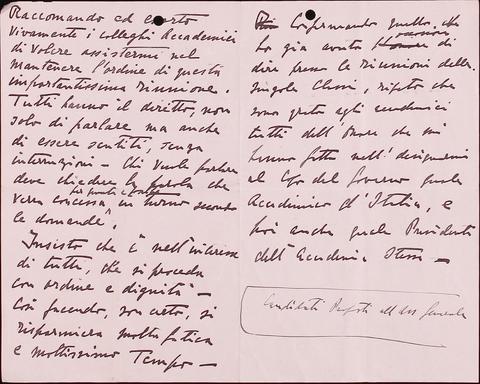 Raccomando ed esorto
vivamente i colleghi Accademici
di volere assistermi nel
mantenere l'ordine di questa
importantissima riunione.
Tutti hanno il diritto, non
solo di parlare ma anche
di essere sentiti, senza
interruzioni – Chi vuole parlare
deve chiedere la parola che
verrà concessa in turno secondo
le domande".
"Insisto che è nell'interesse
di tutti, che si proceda
con ordine e dignità –
Così facendo, son certo, si
risparmierà molta fatica
e moltissimo Tempo –
Confermando quello che
ho già avuto l'onore di
dire presso le riunioni delle
singole Classi, ripeto che
sono grato agli accademici
tutti dell'Onore che mi
hanno fatto nell'designarmi
al Capo del Governo quale
Accademico d'Italia, e
poi anche quale Presidente
dell'Accademia stessa –